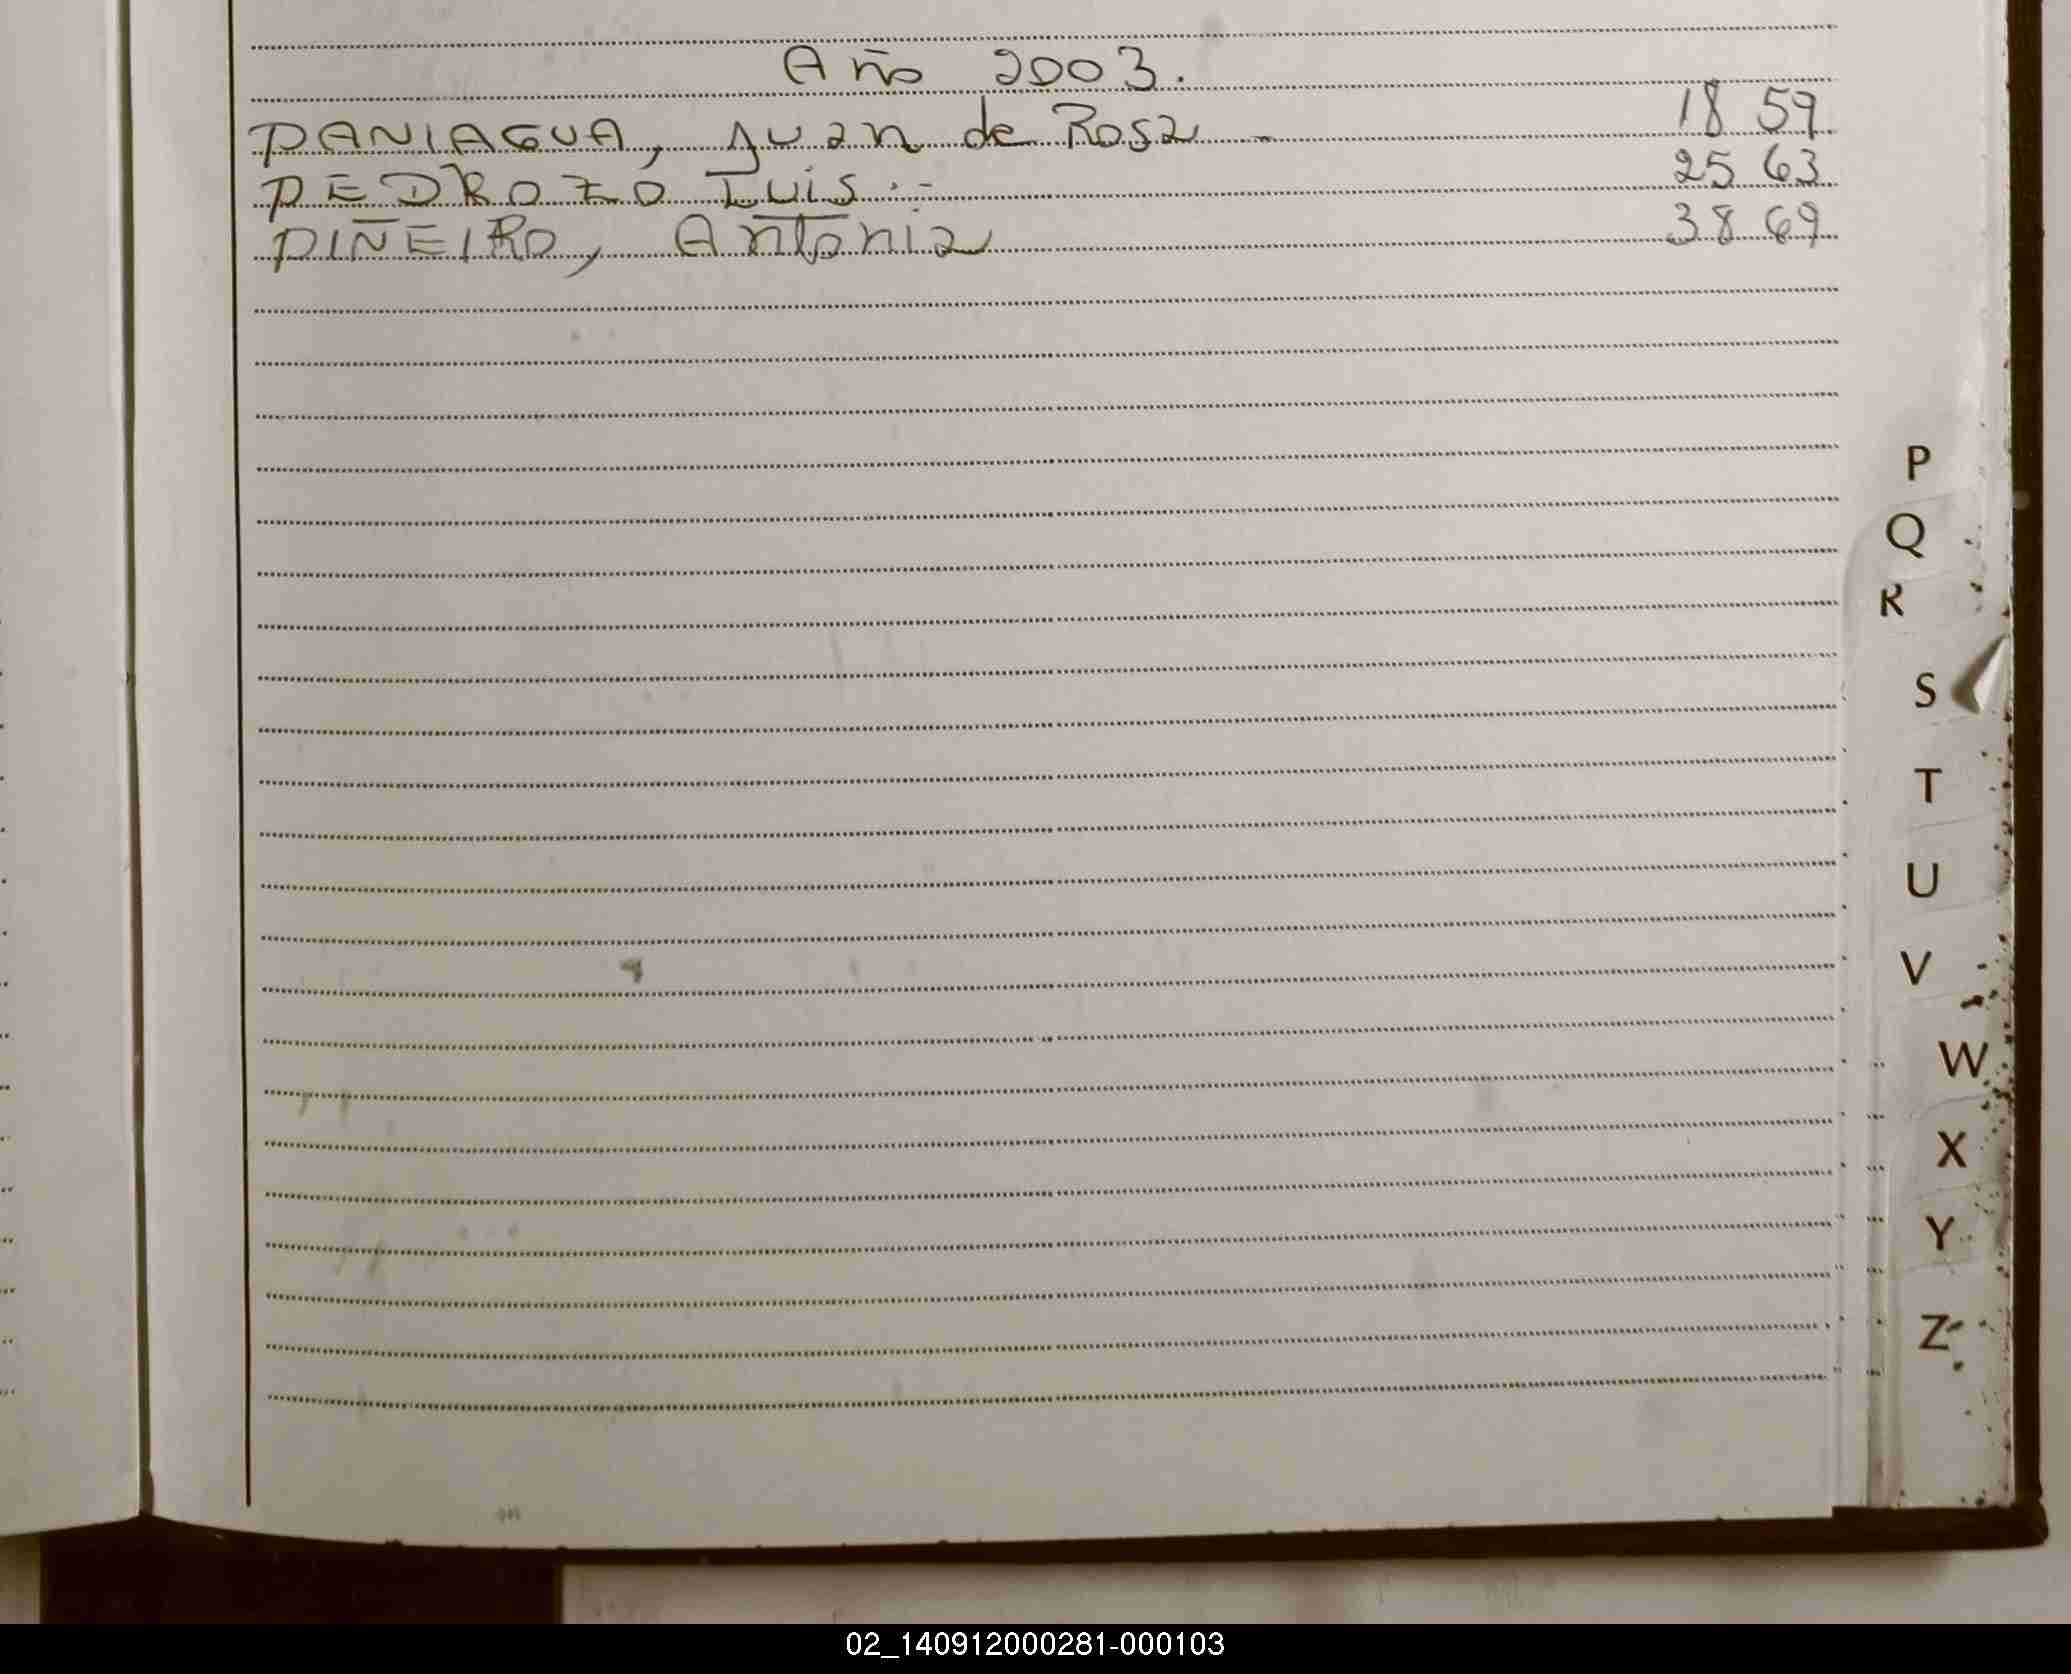 Año 2003.
PANIAGUA, Juan de Rosa - 18 59
PEDROZO Luis.- 25 63
PIÑEIRO, Antonia 38 69
P
Q
R
S
T
U
V
W
X
Y
Z
02_140912000281-000103